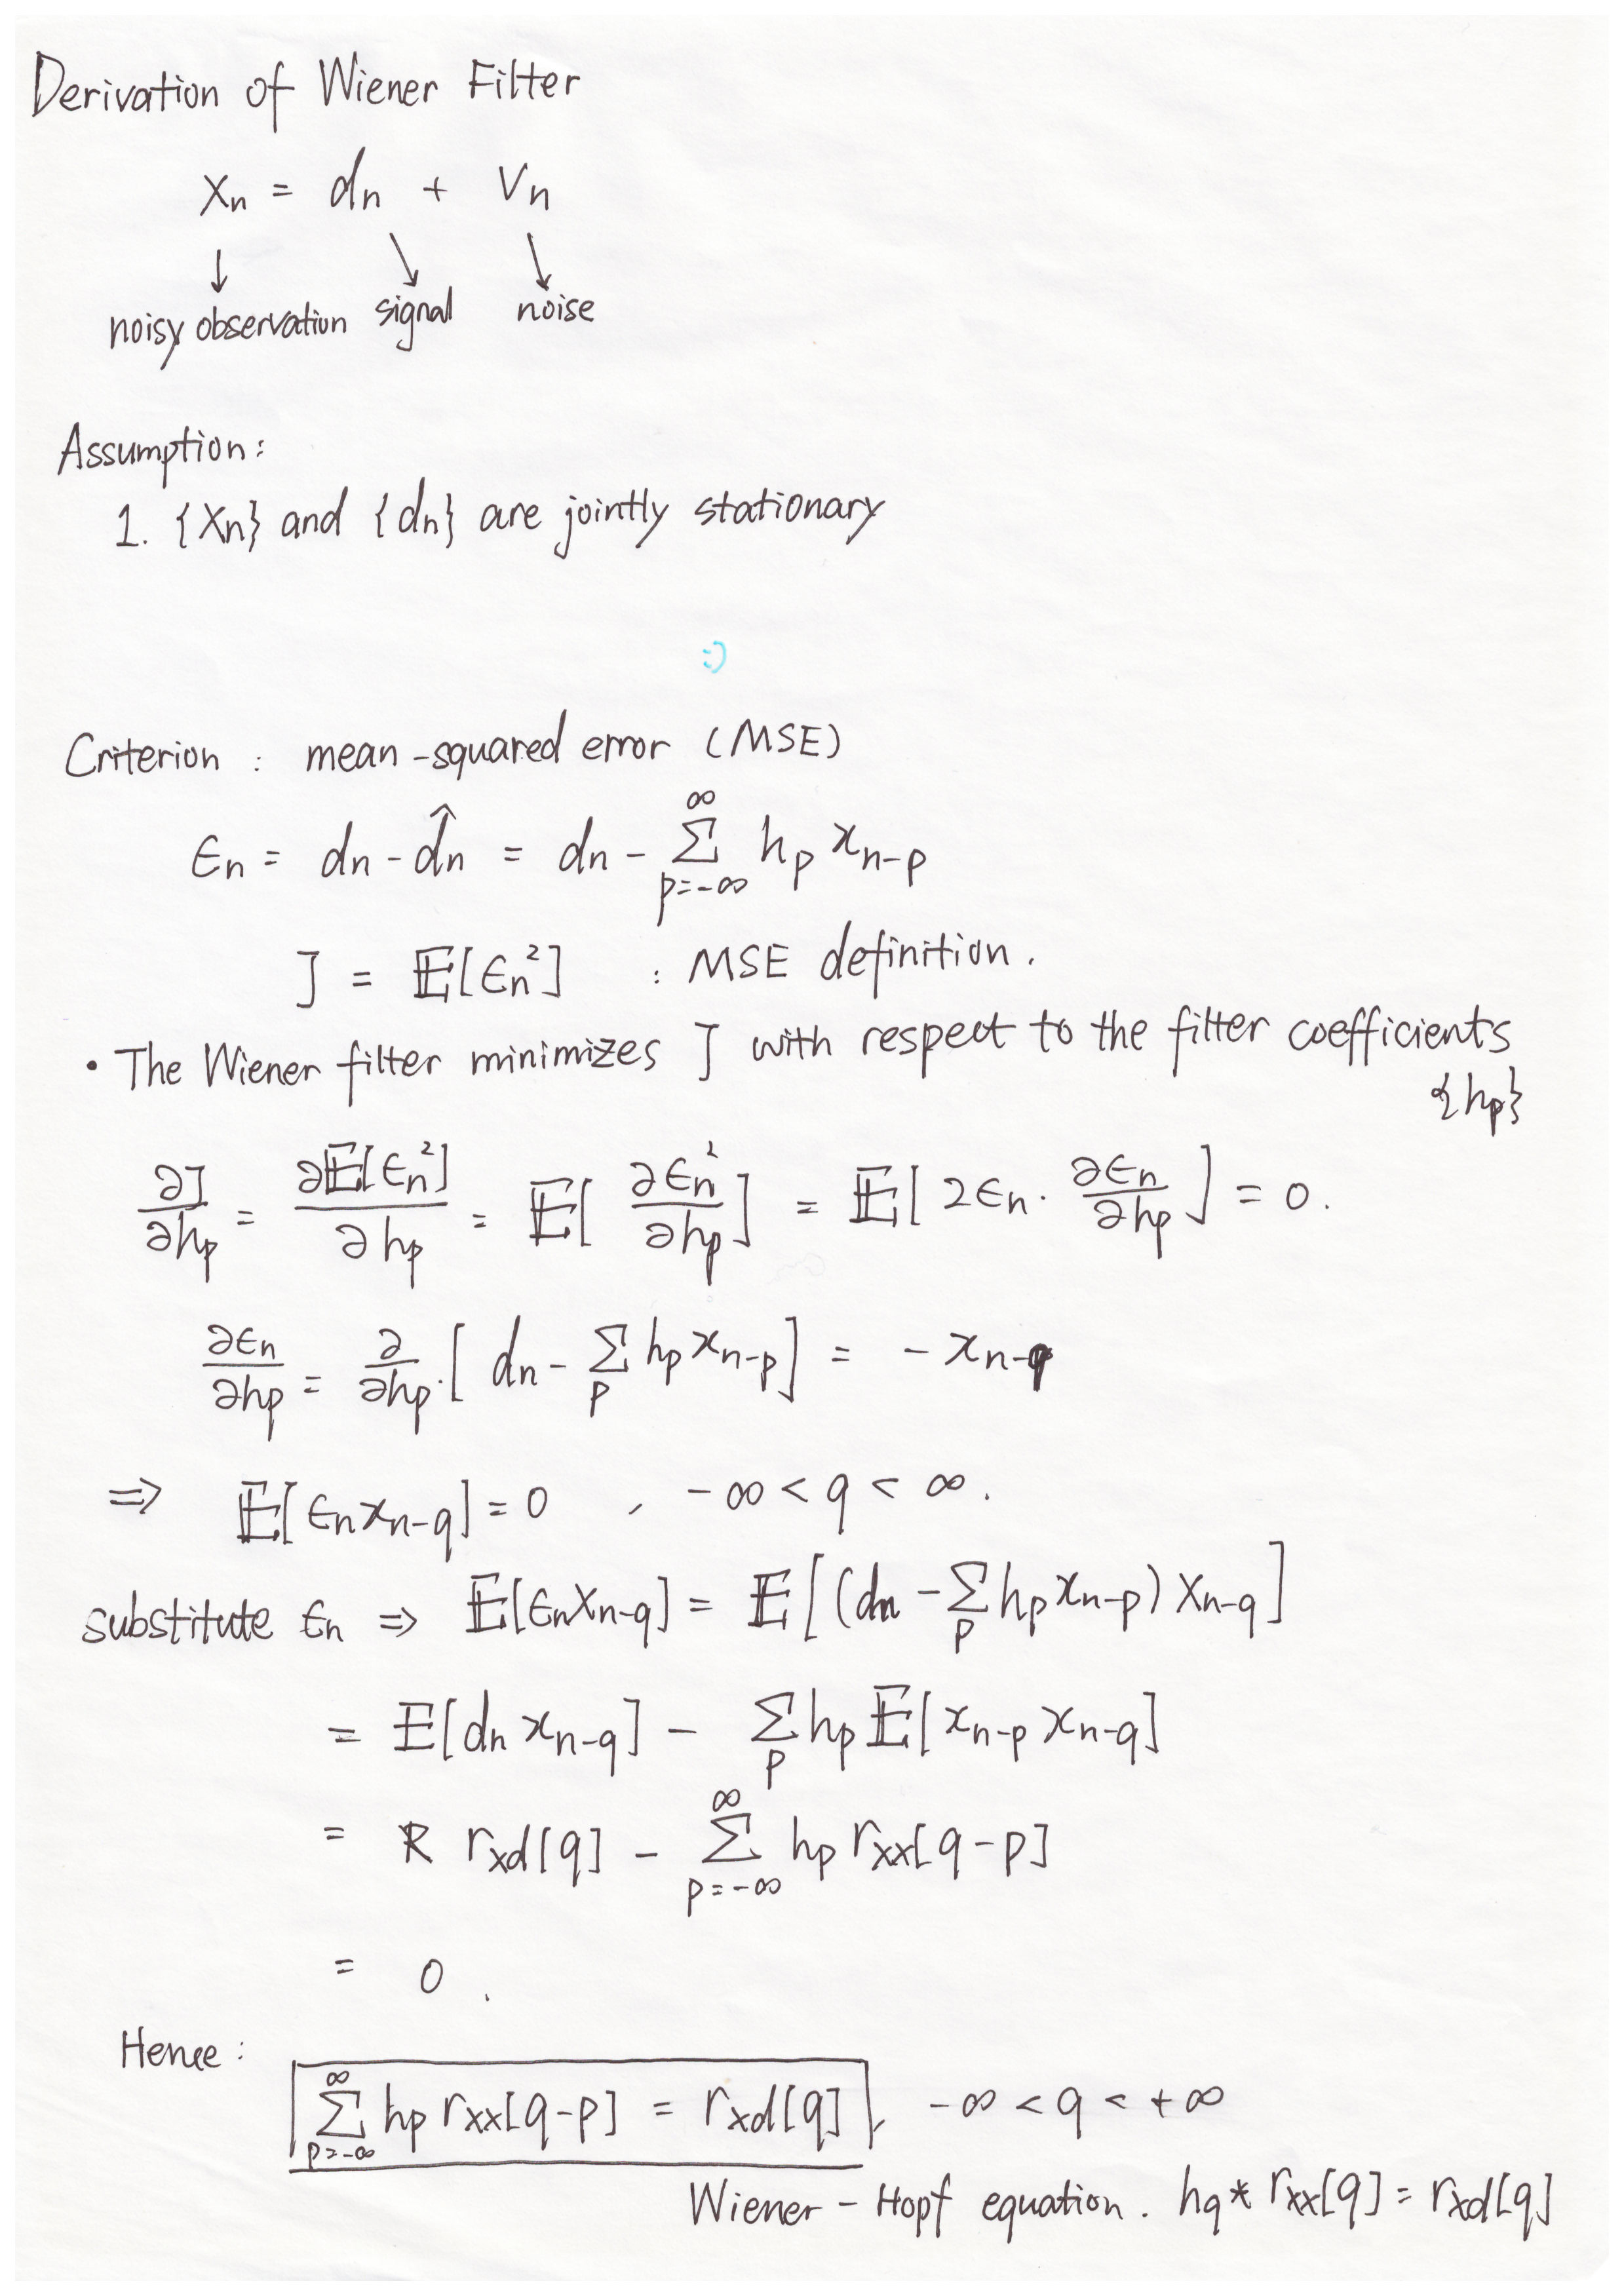 Derivation of Wiener Filter
xₙ = dₙ + vₙ
noisy observation signal noise
Assumption:
1. {xₙ} and {dₙ} are jointly stationary
:)
Criterion : mean-squared error (MSE)
ϵₙ = dₙ - d̂ₙ = dₙ - ∑_{p=-∞}^{∞} h_p x_{n-p}
J = 𝔼[ϵₙ²] : MSE definition.
• The Wiener filter minimizes J with respect to the filter coefficients
{h_p}
∂J/∂h_p = ∂𝔼[ϵₙ²]/∂h_p = 𝔼[ ∂ϵₙ²/∂h_p ] = 𝔼[ 2ϵₙ · ∂ϵₙ/∂h_p ] = 0.
∂ϵₙ/∂h_p = ∂/∂h_p · [ dₙ - ∑_p h_p x_{n-p} ] = - x_{n-q}
⇒ 𝔼[ϵₙ x_{n-q}] = 0 , -∞ < q < ∞.
substitute ϵₙ ⇒ 𝔼[ϵₙ x_{n-q}] = 𝔼[(dₙ - ∑_p h_p x_{n-p}) x_{n-q}]
= 𝔼[dₙ x_{n-q}] - ∑_p h_p 𝔼[x_{n-p} x_{n-q}]
= R r_{xd}[q] - ∑_{p=-∞}^{∞} h_p r_{xx}[q-p]
= 0.
Hence:
∑_{p=-∞}^{∞} h_p r_{xx}[q-p] = r_{xd}[q] , -∞ < q < +∞
Wiener - Hopf equation. h_q * r_{xx}[q] = r_{xd}[q]